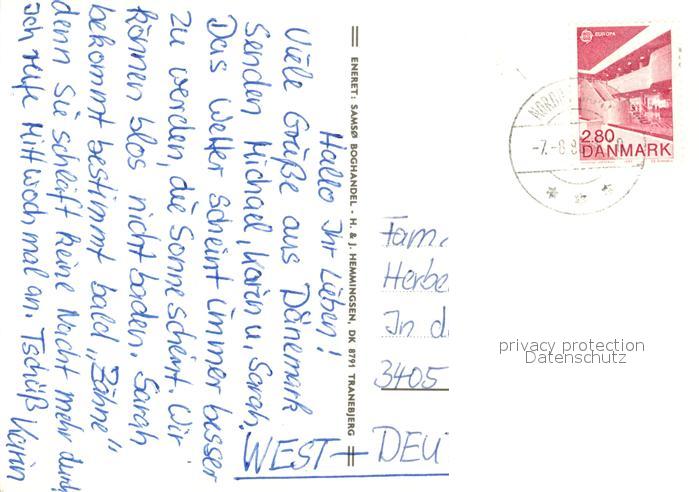 Hallo Ihr Lieben!
Viele Grüße aus Dänemark
Senden Michael, Karin u. Sarah.
Das Wetter scheint immer besser
zu werden, die Sonne scheint. Wir
können blos nicht baden. Sarah
bekommt bestimmt bald „Zähne"
denn sie schläft keine Nacht mehr durch
ich rufe Mittwoch mal an. Tschüß Karin
ENERET: SAMSØ BOGHANDEL - H. & J. HEMMINGSEN, DK 8791 TRANEBJERG
EUROPA
2.80
DANMARK
-7.-8.8
Fam.
Herbe
In d
3405
WEST- DEU
privacy protection
Datenschutz